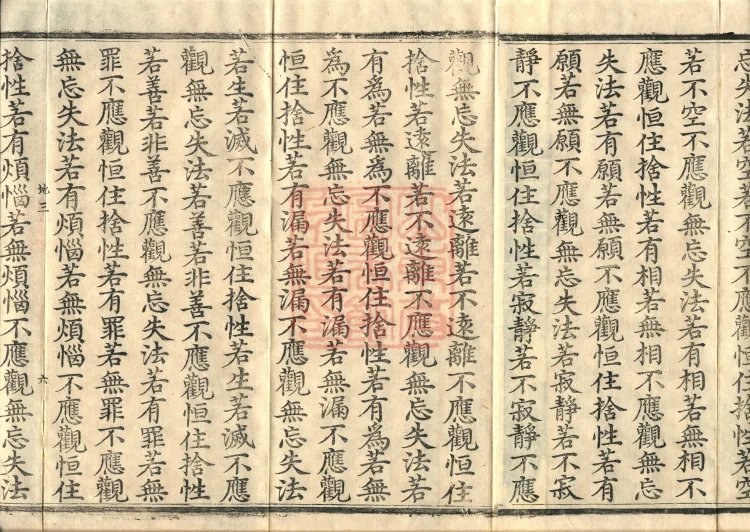 忘失法若空若不空不應觀恒住捨性若空
若不空不應觀無忘失法若有相若無相不
應觀恒住捨性若有相若無相不應觀無忘
失法若有願若無願不應觀恒住捨性若有
願若無願不應觀無忘失法若寂靜若不寂
靜不應觀恒住捨性若寂靜若不寂靜不應
觀無忘失法若遠離若不遠離不應觀恒住
捨性若遠離若不遠離不應觀無忘失法若
有爲若無爲不應觀恒住捨性若有爲若無
爲不應觀無忘失法若有漏若無漏不應觀
恒住捨性若有漏若無漏不應觀無忘失法
若生若滅不應觀恒住捨性若生若滅不應
觀無忘失法若善若非善不應觀恒住捨性
若善若非善不應觀無忘失法若有罪若無
罪不應觀恒住捨性若有罪若無罪不應觀
無忘失法若有煩惱若無煩惱不應觀恒住
地三 六
捨性若有煩惱若無煩惱不應觀無忘失法